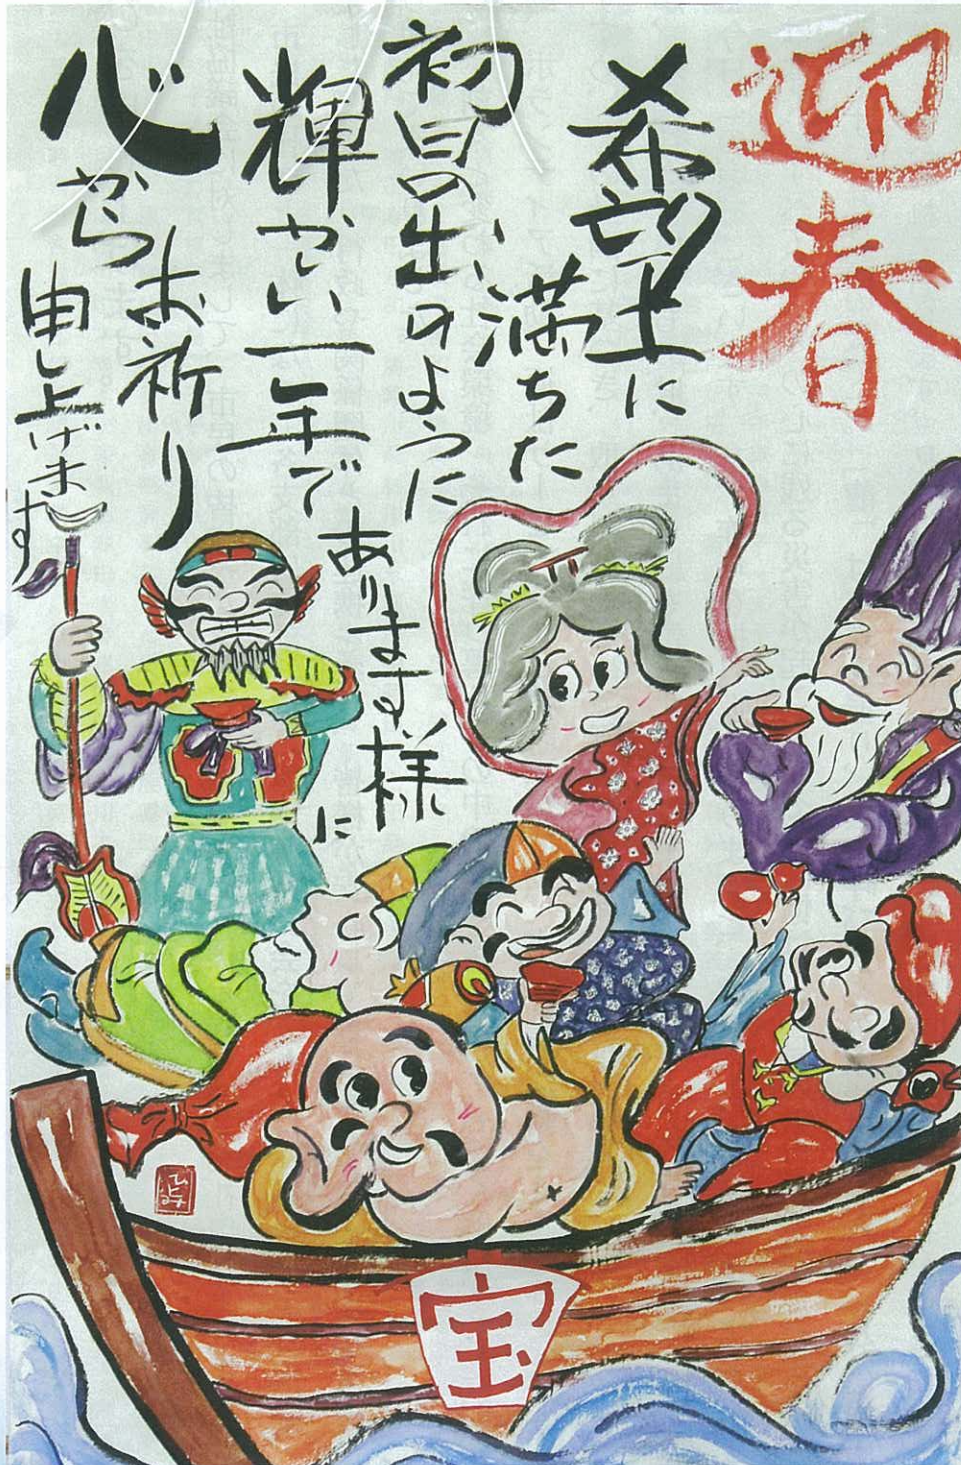 迎春
希望に
満ちた
初日の出のように
輝かしい一年で
あります様に
心から
お祈り
申し上げます
ひとみ
宝